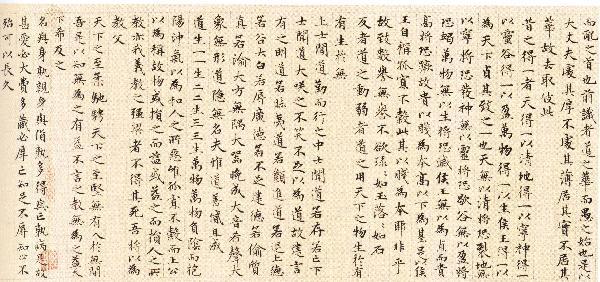 而亂之首也前識者道之華而愚之始也是以
大丈夫處其厚不處其薄居其實不居其
華故去取彼此
昔之得一者天得一以清地得一以寧神得一
以靈谷得一以盈萬物得一以生侯王得一以
為天下貞其致之一也天無以清將恐裂地無
以寧將恐發神無以靈將恐歇谷無以盈將
恐竭萬物無以生將恐滅侯王無以為貞而貴
高將恐蹶故貴以賤為本高以下為基是以侯
王自稱孤寡不穀此其以賤為本耶非乎
故致數譽無譽不欲琭〻如玉落〻如石
反者道之動弱者道之用天下之物生於有
有生於無
上士聞道勤而行之中士聞道若存若亡下
士聞道大咲之不笑不足以為道故建言
有之明道若昧夷道若纇進道若退上德
若谷大白若辱廣德若不足建德若偷質
真若渝大方無隅大器晚成大音希聲大
象無形道隱無名夫惟道善貸且成
道生一一生二二生三三生萬物萬物負陰而抱
陽沖氣以為和人之所惡惟孤寡不穀而王公
以為稱故物或損之而益或益之而損人之所
教亦我義教之強梁者不得其死吾將以為
教父
天下之至柔馳騁天下之至堅無有入於無間
吾是以知無為之有益不言之教無為之益天
下希及之
名與身孰親身與貨孰多得與亡孰病是故
甚愛必大費多藏必厚亡知足不辱知止不
殆可以長久